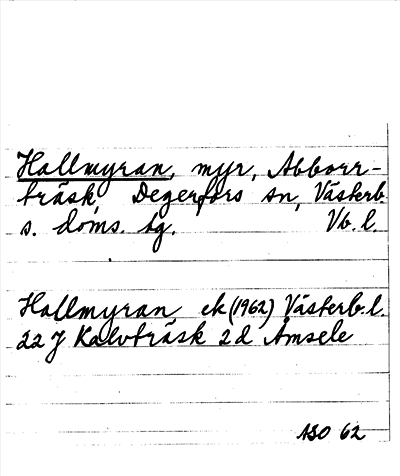 Hallmyran, myr, Abborr-
träsk, Degerfors sn, Västerb.
s. doms. tg. Vb. l.
Hallmyran ek (1962) Västerb. l.
22 J Kalvträsk 2 d Åmsele
ASO 62